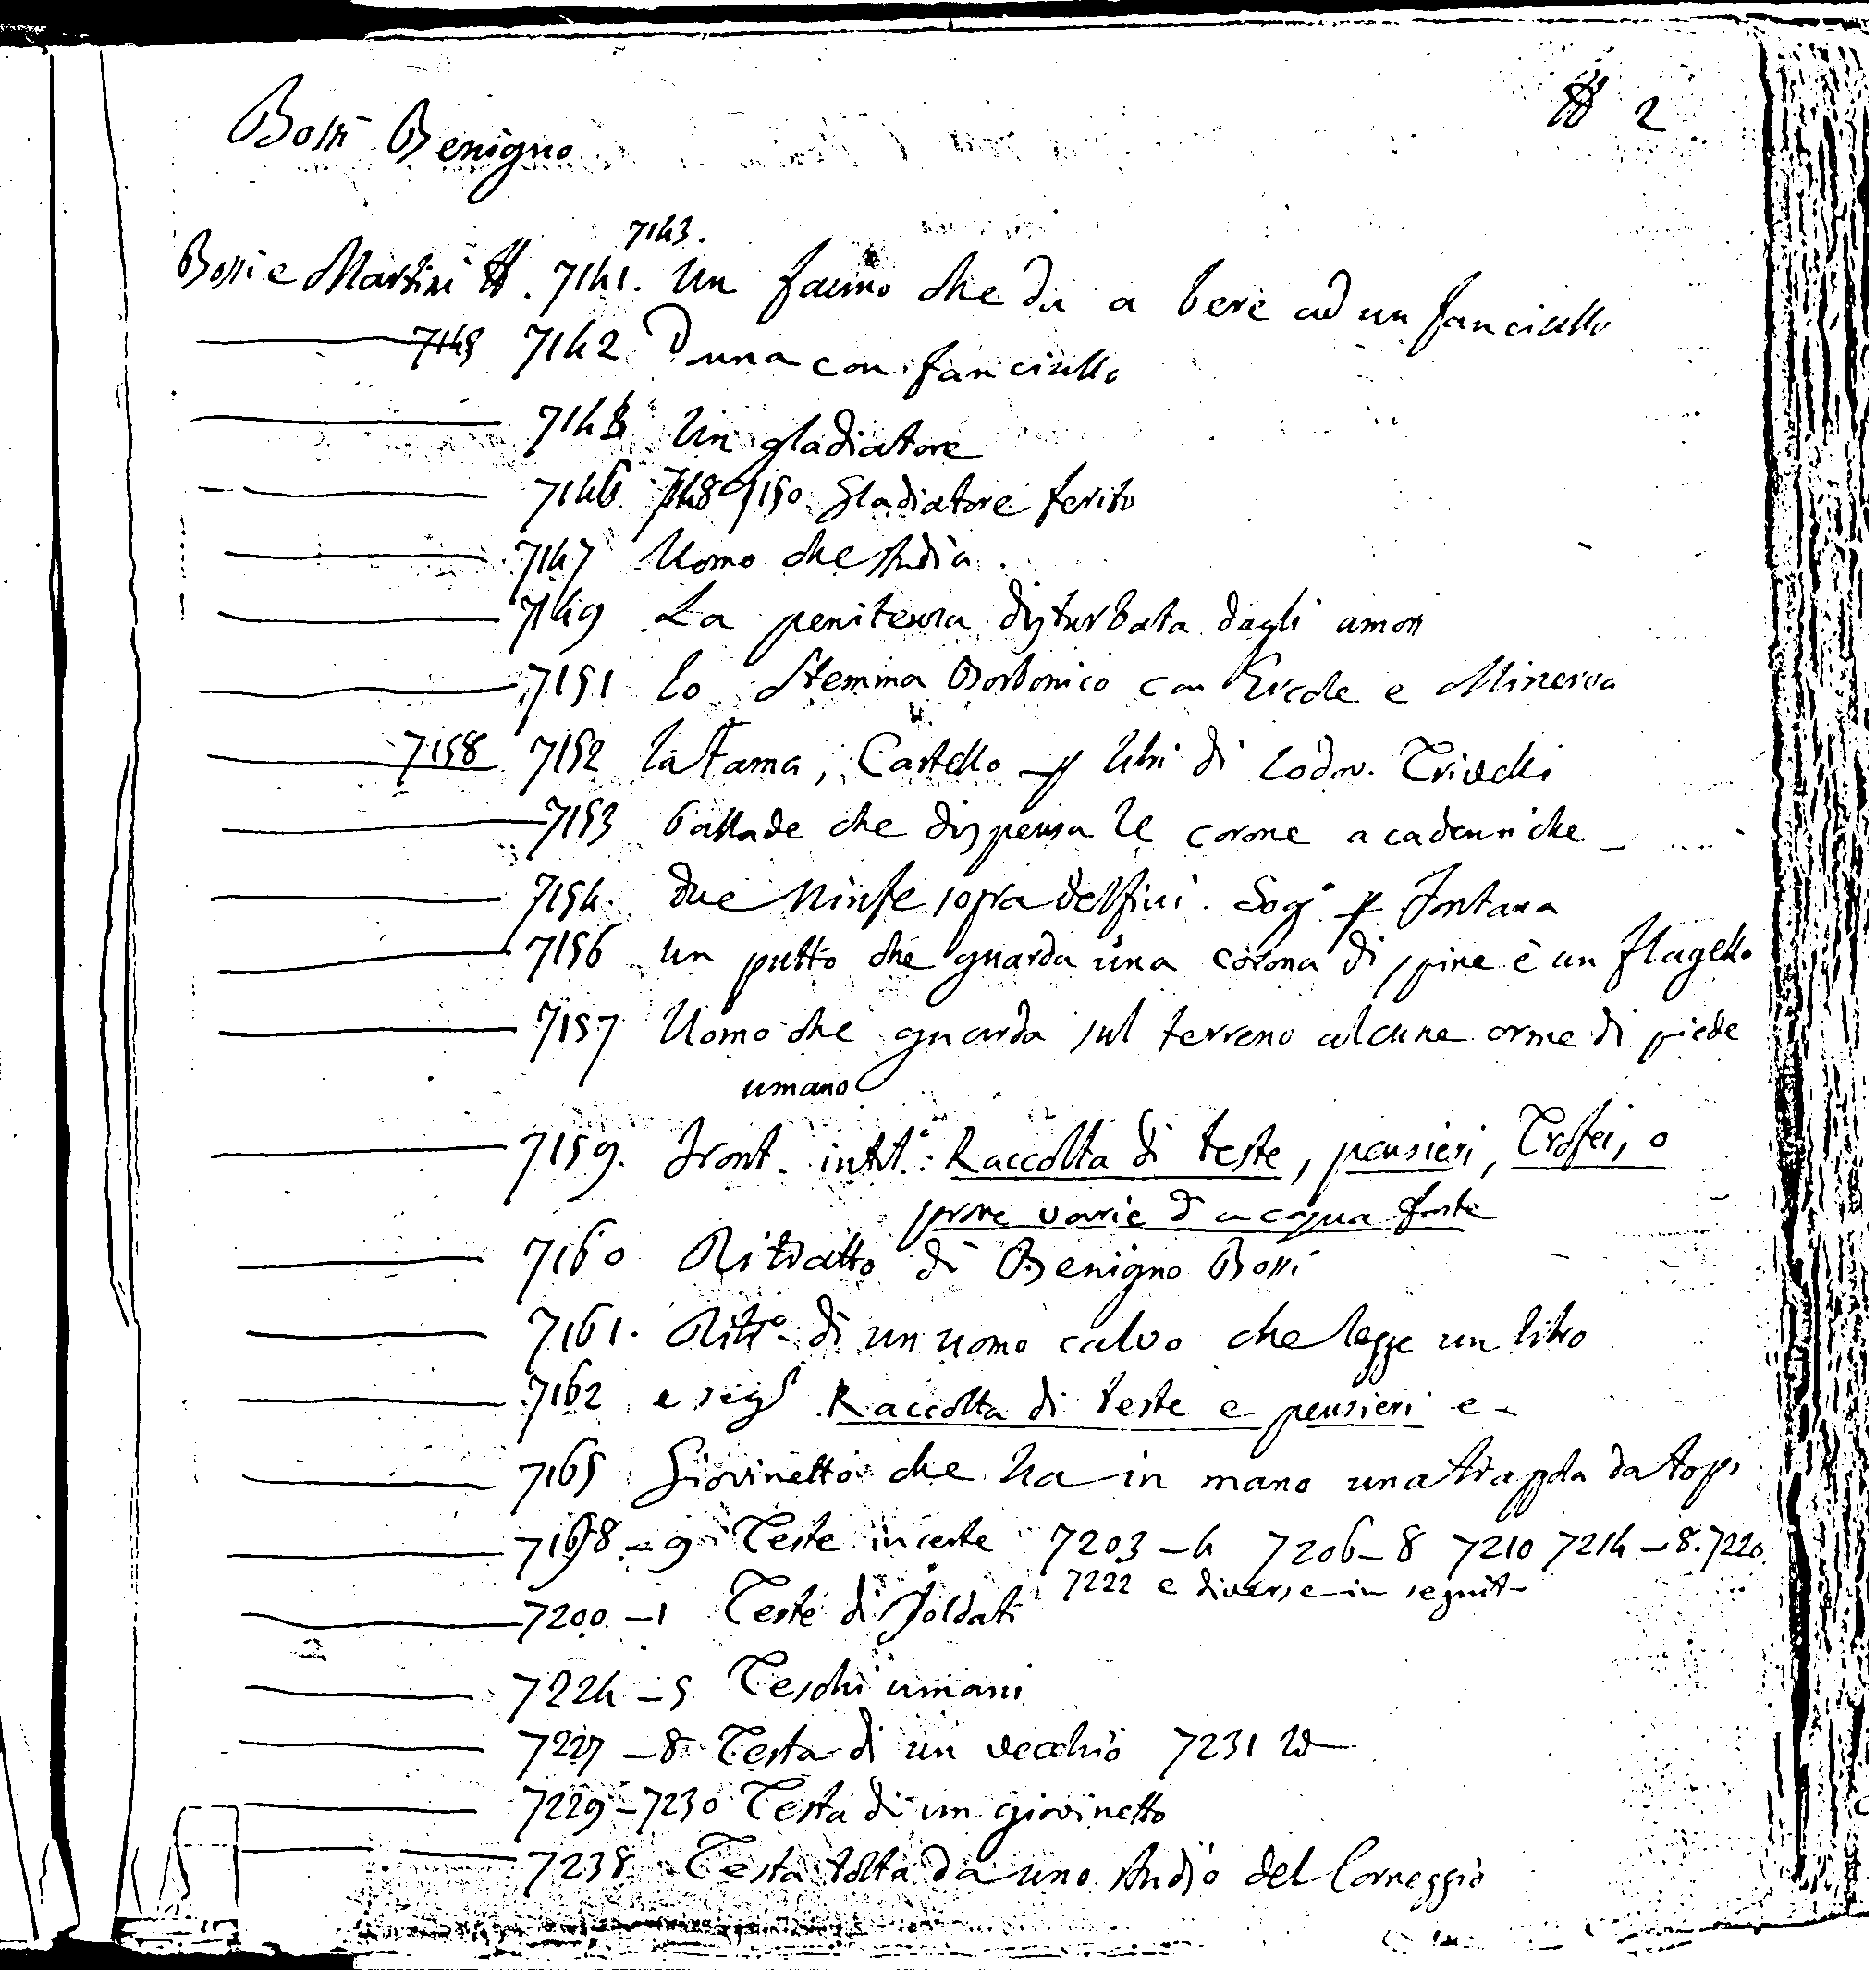 2
Bossi Benigno
7143.
Bossi e Martini 7141. Un fauno che dà a bere ad un fanciullo
7145 7142 Donna con fanciullo
714 Un gladiatore
7146 7148 7150 Gladiatore ferito
7147 Uomo che studia.
7149 La penitenza disturbata dagli amori
7151 Lo Stemma Borbonico con Ercole e Minerva
7158 7152 La Fama, Cartello di Lodov. Trivelli
7153 Pallade che dispensa le corone accademiche
7154. due Ninfe sopra delfini. Sog.o p Fontana
7156 un putto che guarda una corona di spine è un flagello
7157 Uomo che guarda sul terreno alcune orme di piede
umano
7159. Front. intit.°: Raccolta di teste, pensieri, Trofei, o
prove varie d'acqua forte
7160 Ritratto di Benigno Bossi
7161. Ritr.o di un uomo calvo che legge un libro
7162 e seg.i Raccolta di teste e pensieri e -
7165 Giovinetto che ha in mano una trappola da topi
7198 - 9 Teste incerte 7203 - 4 7206 - 8 7210 7214 - 8. 7220
7222 e diverse in seguit-
7200 - 1 Teste di Soldati
7224 - 5 Teschi umani
7227 - 8 Testa di un vecchio 7231 id
7229 - 7230 Testa di un giovinetto
7238 Testa tolta da uno studio del Correggio